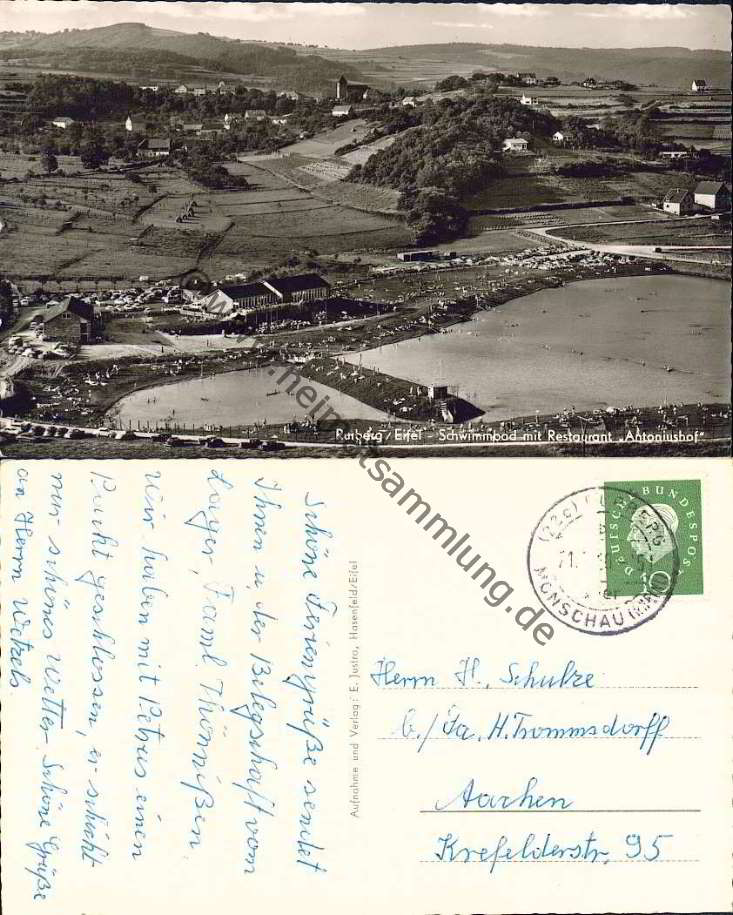 Rurberg/Eifel - Schwimmbad mit Restaurant „Antoniushof"
www.heimatsammlung.de
Schöne Feriengrüße sendet
Ihnen u. der Belegschaft vom
Lager, Faml. Thönnißen.
Wir haben mit Petrus einen
Packt geschlossen, er schickt
nur schönes Wetter. Schöne Grüße
an Herrn Wetzels
Aufnahme und Verlag: E. Justra, Hasenfeld/Eifel
DEUTSCHE BUNDESPOST
10
(22c) RURBERG
MONSCHAU
Herrn H. Schulze
b./Fa. H. Trommsdorff
Aachen
Krefelderstr. 95